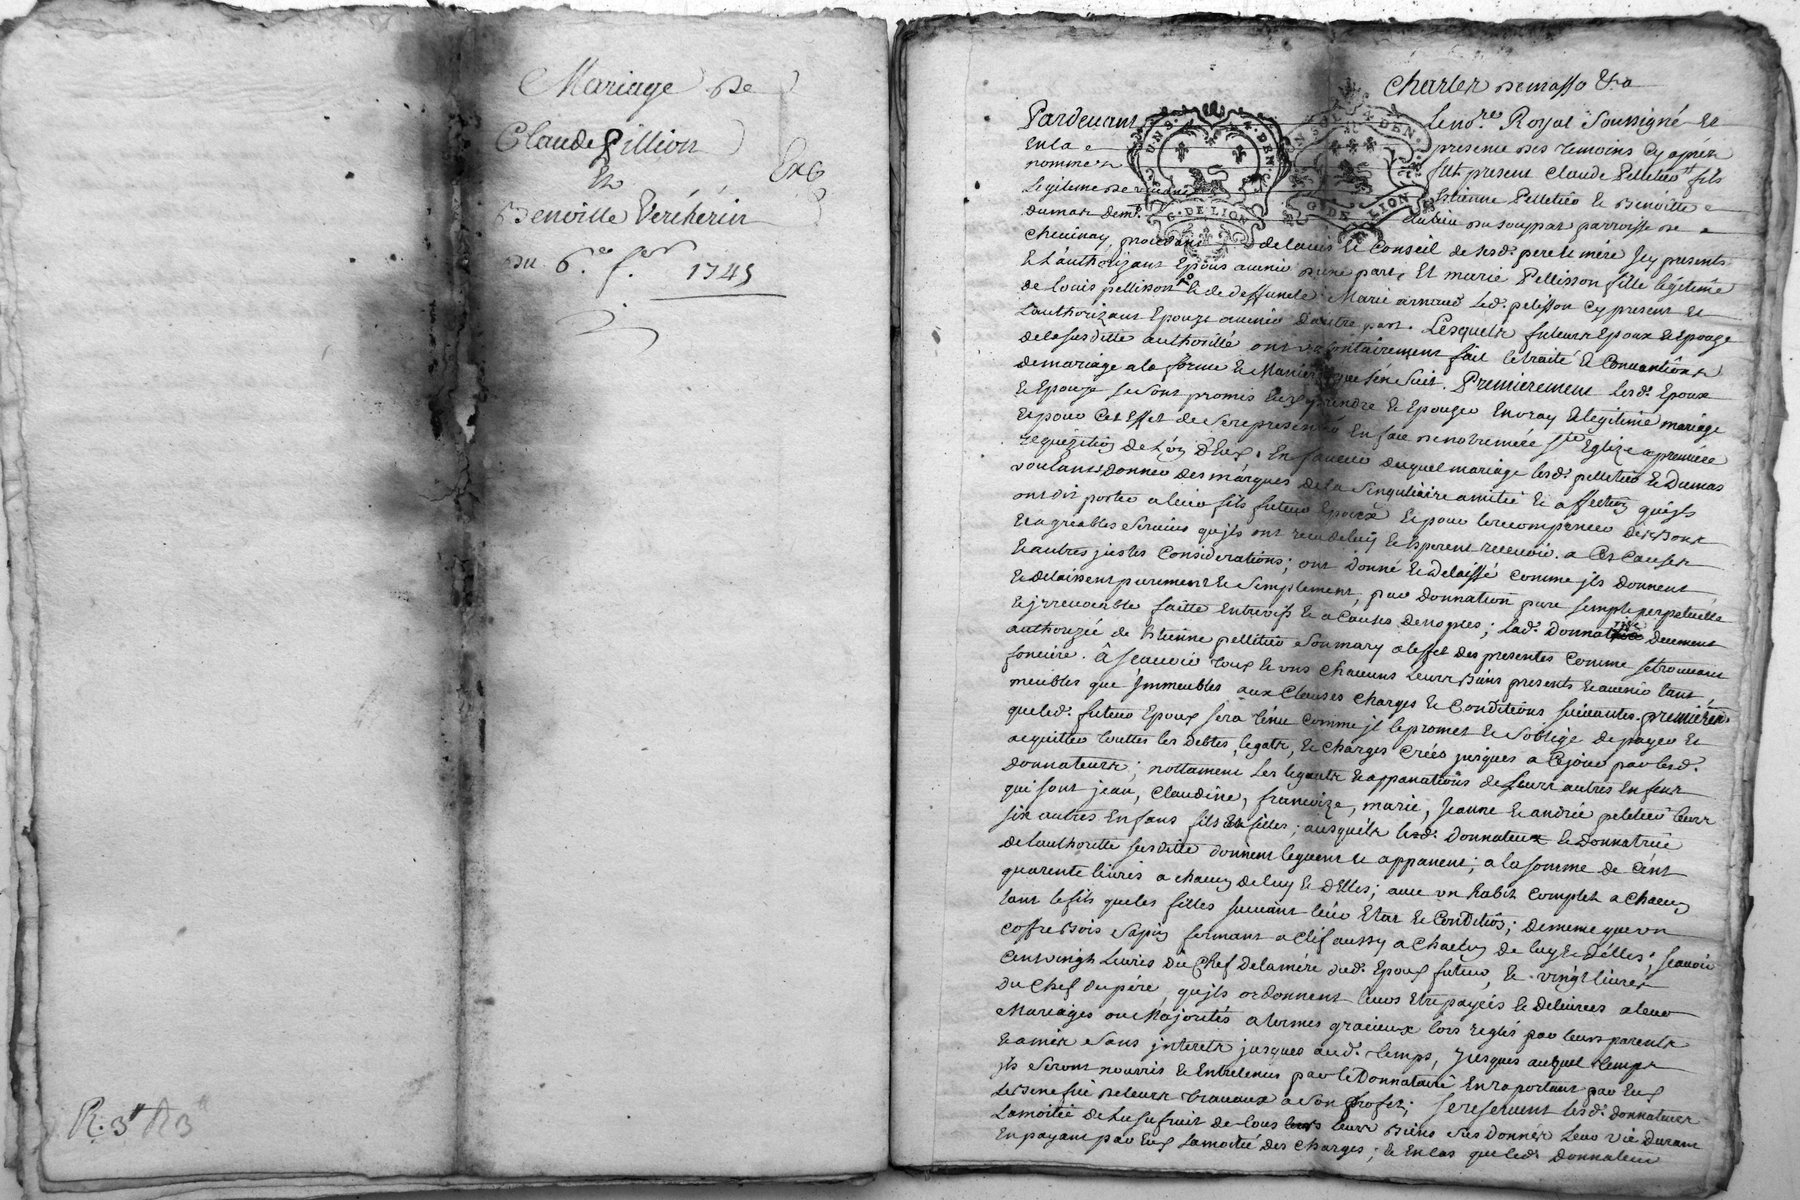 Mariage De
Claude Pillion
Et
Benoitte Verchérin
Du 6.e f.er 1745
R. 3 R 3
Charles Demasso &a
Pardevant Le no.re Royal Soussigné Et
En La presence des temoins Cy après
nommés fut present Claude Pelletier fils
Legitime De Etienne Pelletier Et Benoitte
dumas dem.t au lieu du soupat parroisse De
Chevinay, procedant de lavis Et Conseil de sesd. pere Et mere Jcy presents
Et L'authorizant Epoux avenir d'une part, Et marie Pellisson fille legitime
de Louis pellisson Et de deffuncte Marie arnaud Led. pelisson Cy present Et
L'authorizant Epouze avenir D'autre part. Lesquels futeurs Epoux Et Epouze
De la susditte authorité ont volontairement fait le traité Et Conventions
De mariage a la forme Et Maniere que s'en suit. Premierement Lesd. Epoux
Et Epouze se sont promis Eux prendre Et Epouzer En vray Et legitime mariage
Et pour Cet Effet de se representer En face De notre mere s.te Eglize a premiere
requizition de L'un d'Eux. En faveur duquel mariage lesd. pelletier Et Dumas
voulants donner Des marques de La singuliaire amitié Et affection qu'jls
ont dit porter a leur fils futeur Epoux Et pour le recompencer Des Bons
Et agreables services qu'jls ont receu de luy Et Esperent recevoir. a Ces Causes
Et autres justes Considerations; ont Donné Et Delaissé Comme jls Donnent
Et Delaissent purement Et simplement, par Donnation pure simple perpetuelle
Et jrrevocable faitte Entrevifs Et a Causes De nopces; Lad. Donnatrice Deuement
authorizée de Etienne pelletier son mary a leffet des presentes Comme se trouvant
fonciere. À scavoir tous Et uns chacuns Leurs Biens presents Et avenir tant
meubles que Jmmeubles aux Clauses Charges Et Conditions suivantes. premierem.t
que led. futeur Epoux sera tenu Comme jl le promet Et s'oblige de payer Et
acquitter touttes les Debtes, legats, Et Charges Créés jusques a Cejour par lesd.
Donnateurs; nottament Les legats Et appanations de leurs autres Enfens
qui sont jean, Claudine, francoize, marie, Jeanne Et andrée peletier leurs
six autres Enfans fils Et filles; ausquels lesd. Donnateur Et Donnatrice
De lauthorité susditte donnent leguent Et appanent; a la somme de Cent
quarente livres a chacun de luy Et d'Elles; avec vn habit Complet a chacun
tant le fils que les filles suivant leur Etat Et Condition; de meme que vn
Coffre Bois sapin fermant a Clif aussy a chacun de luy Et d'Elles; scavoir
Cent vingt Livres du Chef De la mere dud. Epoux futeur, Et vingt livres
Du Chef du pére, qu'jls ordonnent leurs Etre payées Et Delivrees a leur
Mariages ou Majorités a termes gracieux lors reglés par leurs parents
Et amis sans jnterets jusques aud. temps, Jusques auquel temps
jls seront nourris Et Entretenus par le Donnataire En raportant par Eux
Le Benefice De leurs travaux a son profit; se reservent lesd. Donnateurs
La moitié de Lusufruit de tous leurs Biens sus Donnés Leur vie Durant
En payant par Eux La moitié Des Charges; Et En Cas que led. Donnateur